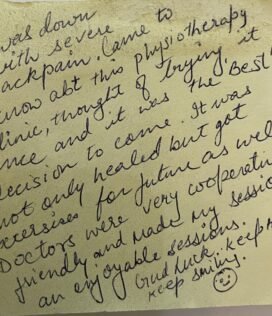 was down
with severe
backpain. Came to
know abt this physiotherapy
clinic, thought of trying it
once and it was the "Best"
decision to come. It was
not only healed but got
exercises for future as well.
Doctors were very cooperative
friendly and made my sessions
an enjoyable sessions.
Gud luck. keep
keep smiling.